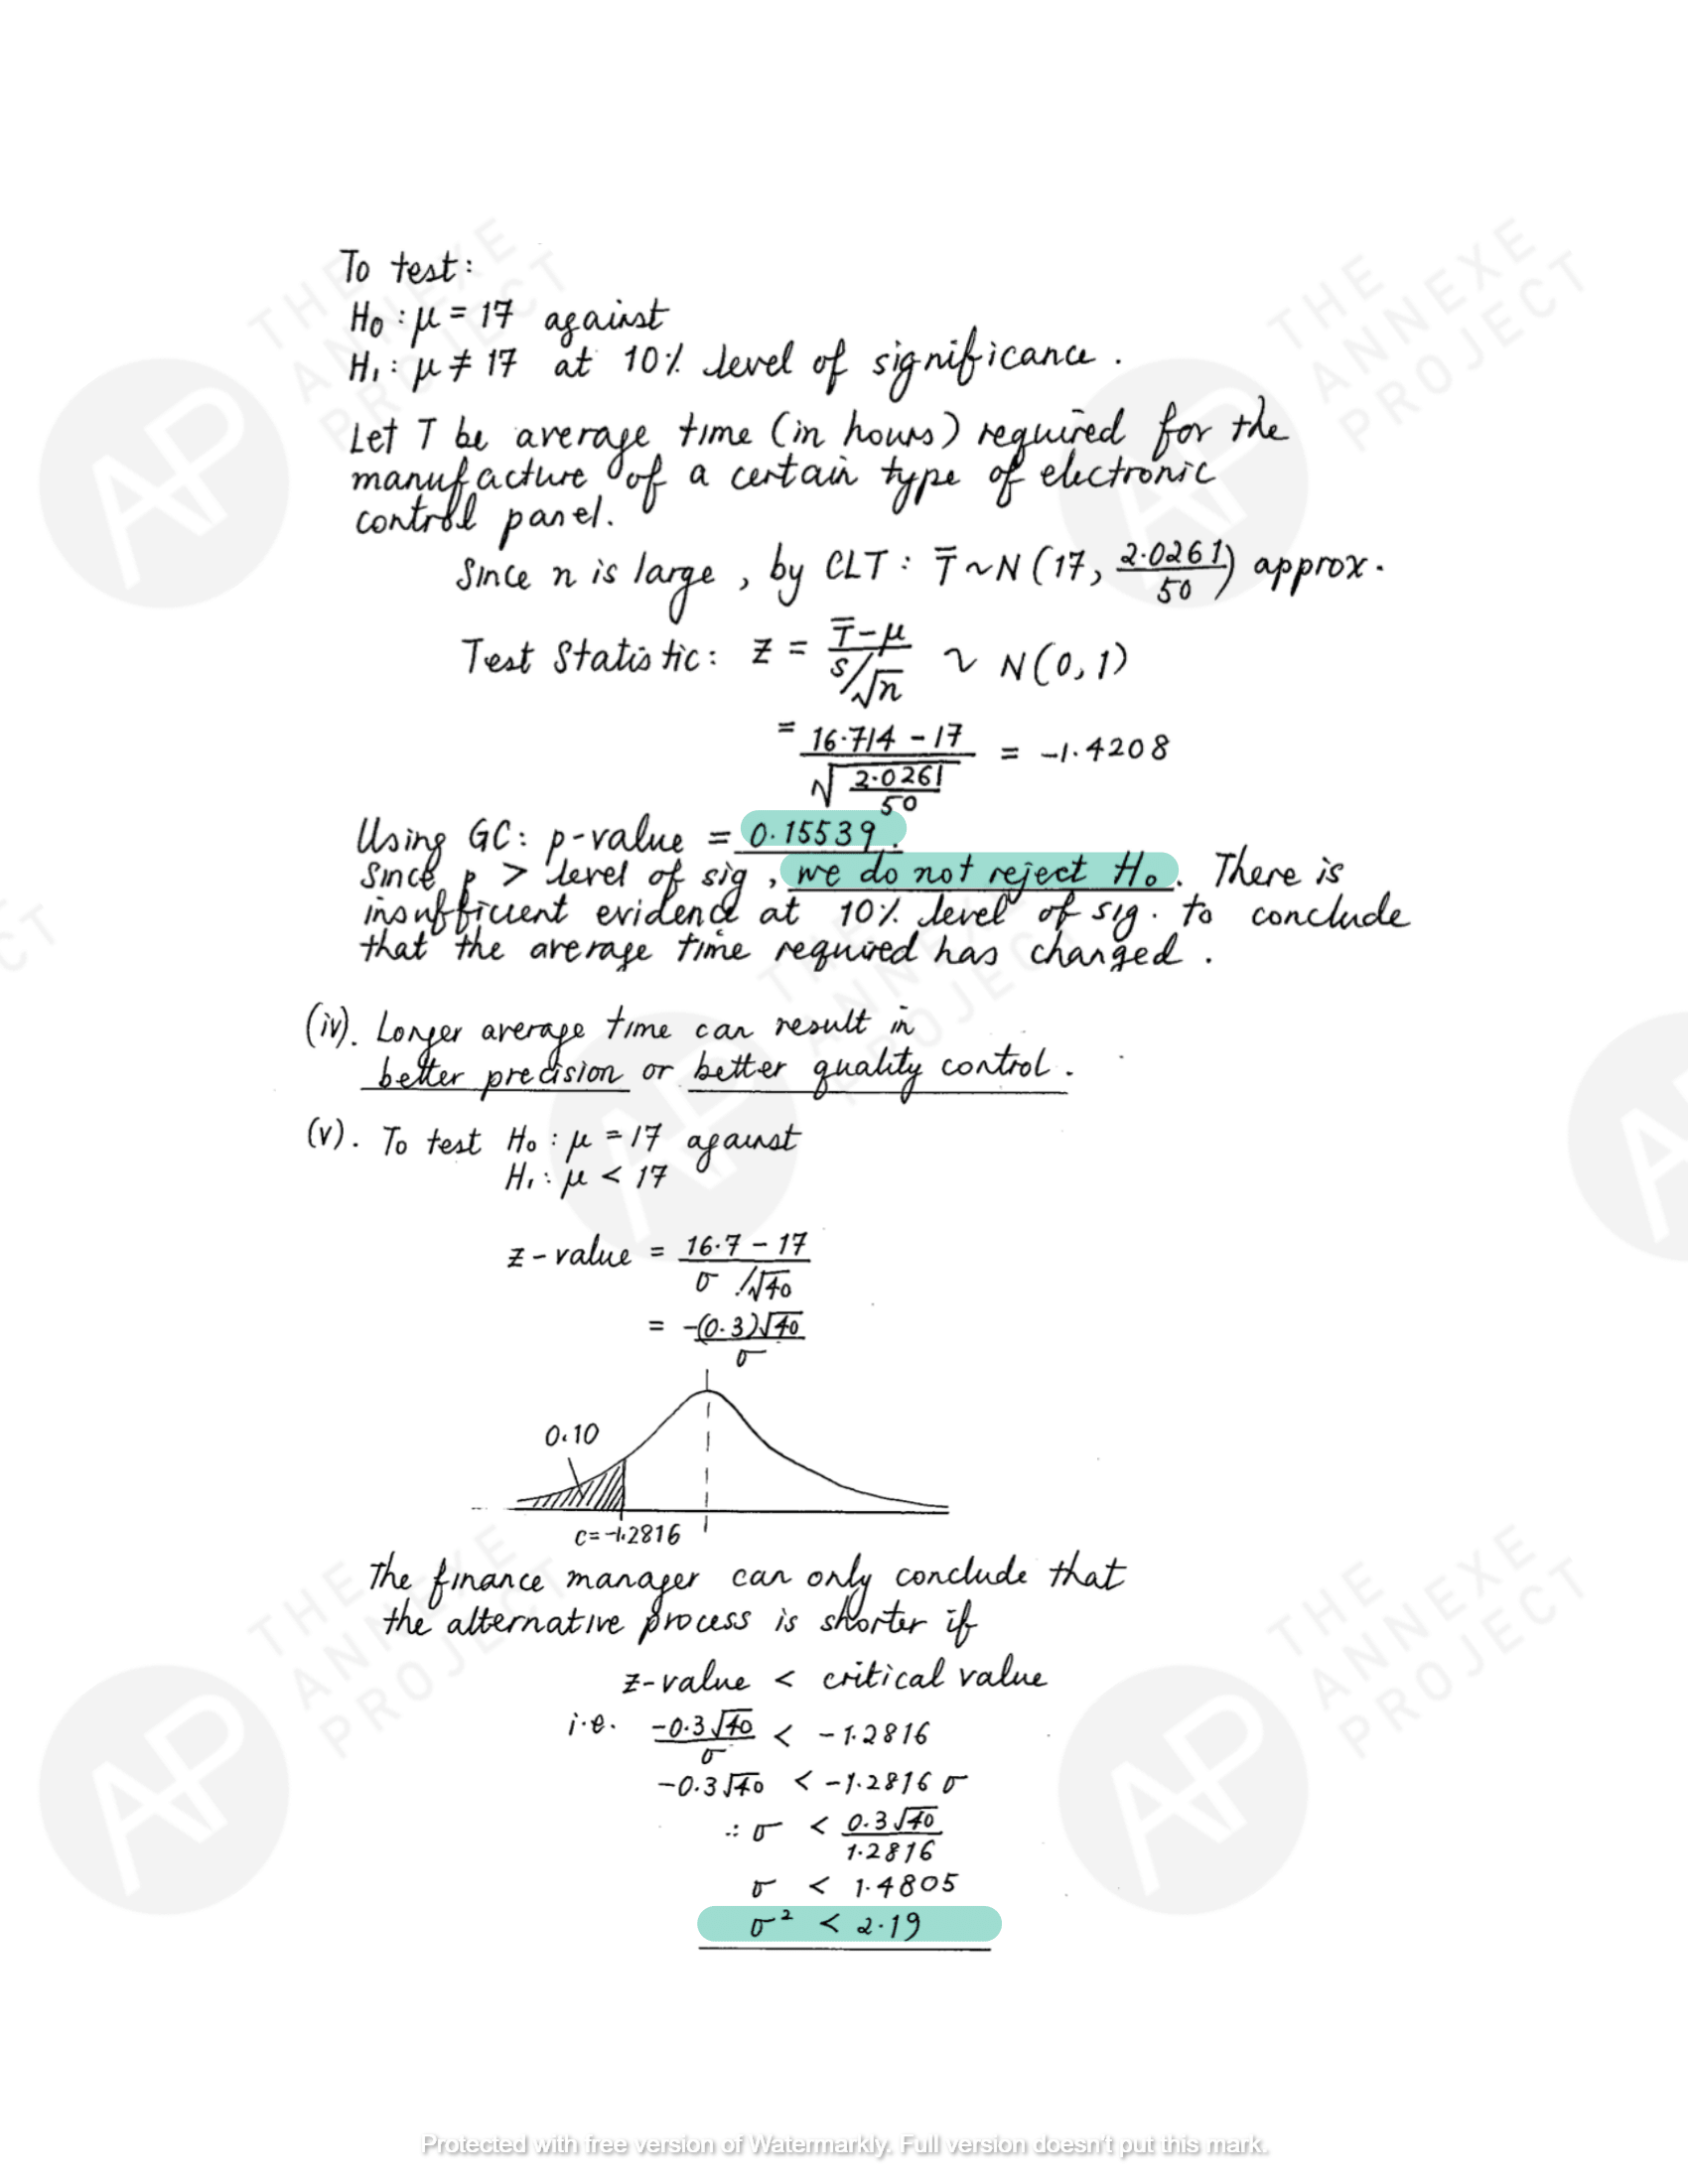 To test:
H₀ : μ = 17 against
H₁ : μ ≠ 17 at 10% level of significance.
Let T be average time (in hours) required for the
manufacture of a certain type of electronic
control panel.
Since n is large, by CLT : T̅ ~ N (17, 2.0261/50) approx.
Test Statistic: Z = (T̅ - μ)/(s/√n) ~ N(0,1)
= (16.714 - 17)/√(2.0261/50) = -1.4208
Using GC: p-value = 0.15539.
Since p > level of sig, we do not reject H₀. There is
insufficient evidence at 10% level of sig. to conclude
that the average time required has changed.
(iv). Longer average time can result in
better precision or better quality control.
(v). To test H₀ : μ = 17 against
H₁ : μ < 17
z-value = (16.7 - 17)/(σ/√40)
= -(0.3)√40/σ
0.10
c = -1.2816
The finance manager can only conclude that
the alternative process is shorter if
z-value < critical value
i.e. -0.3√40/σ < -1.2816
-0.3√40 < -1.2816 σ
∴ σ < 0.3√40/1.2816
σ < 1.4805
σ² < 2.19
THE ANNEXE PROJECT
AP
Protected with free version of Watermarkly. Full version doesn't put this mark.